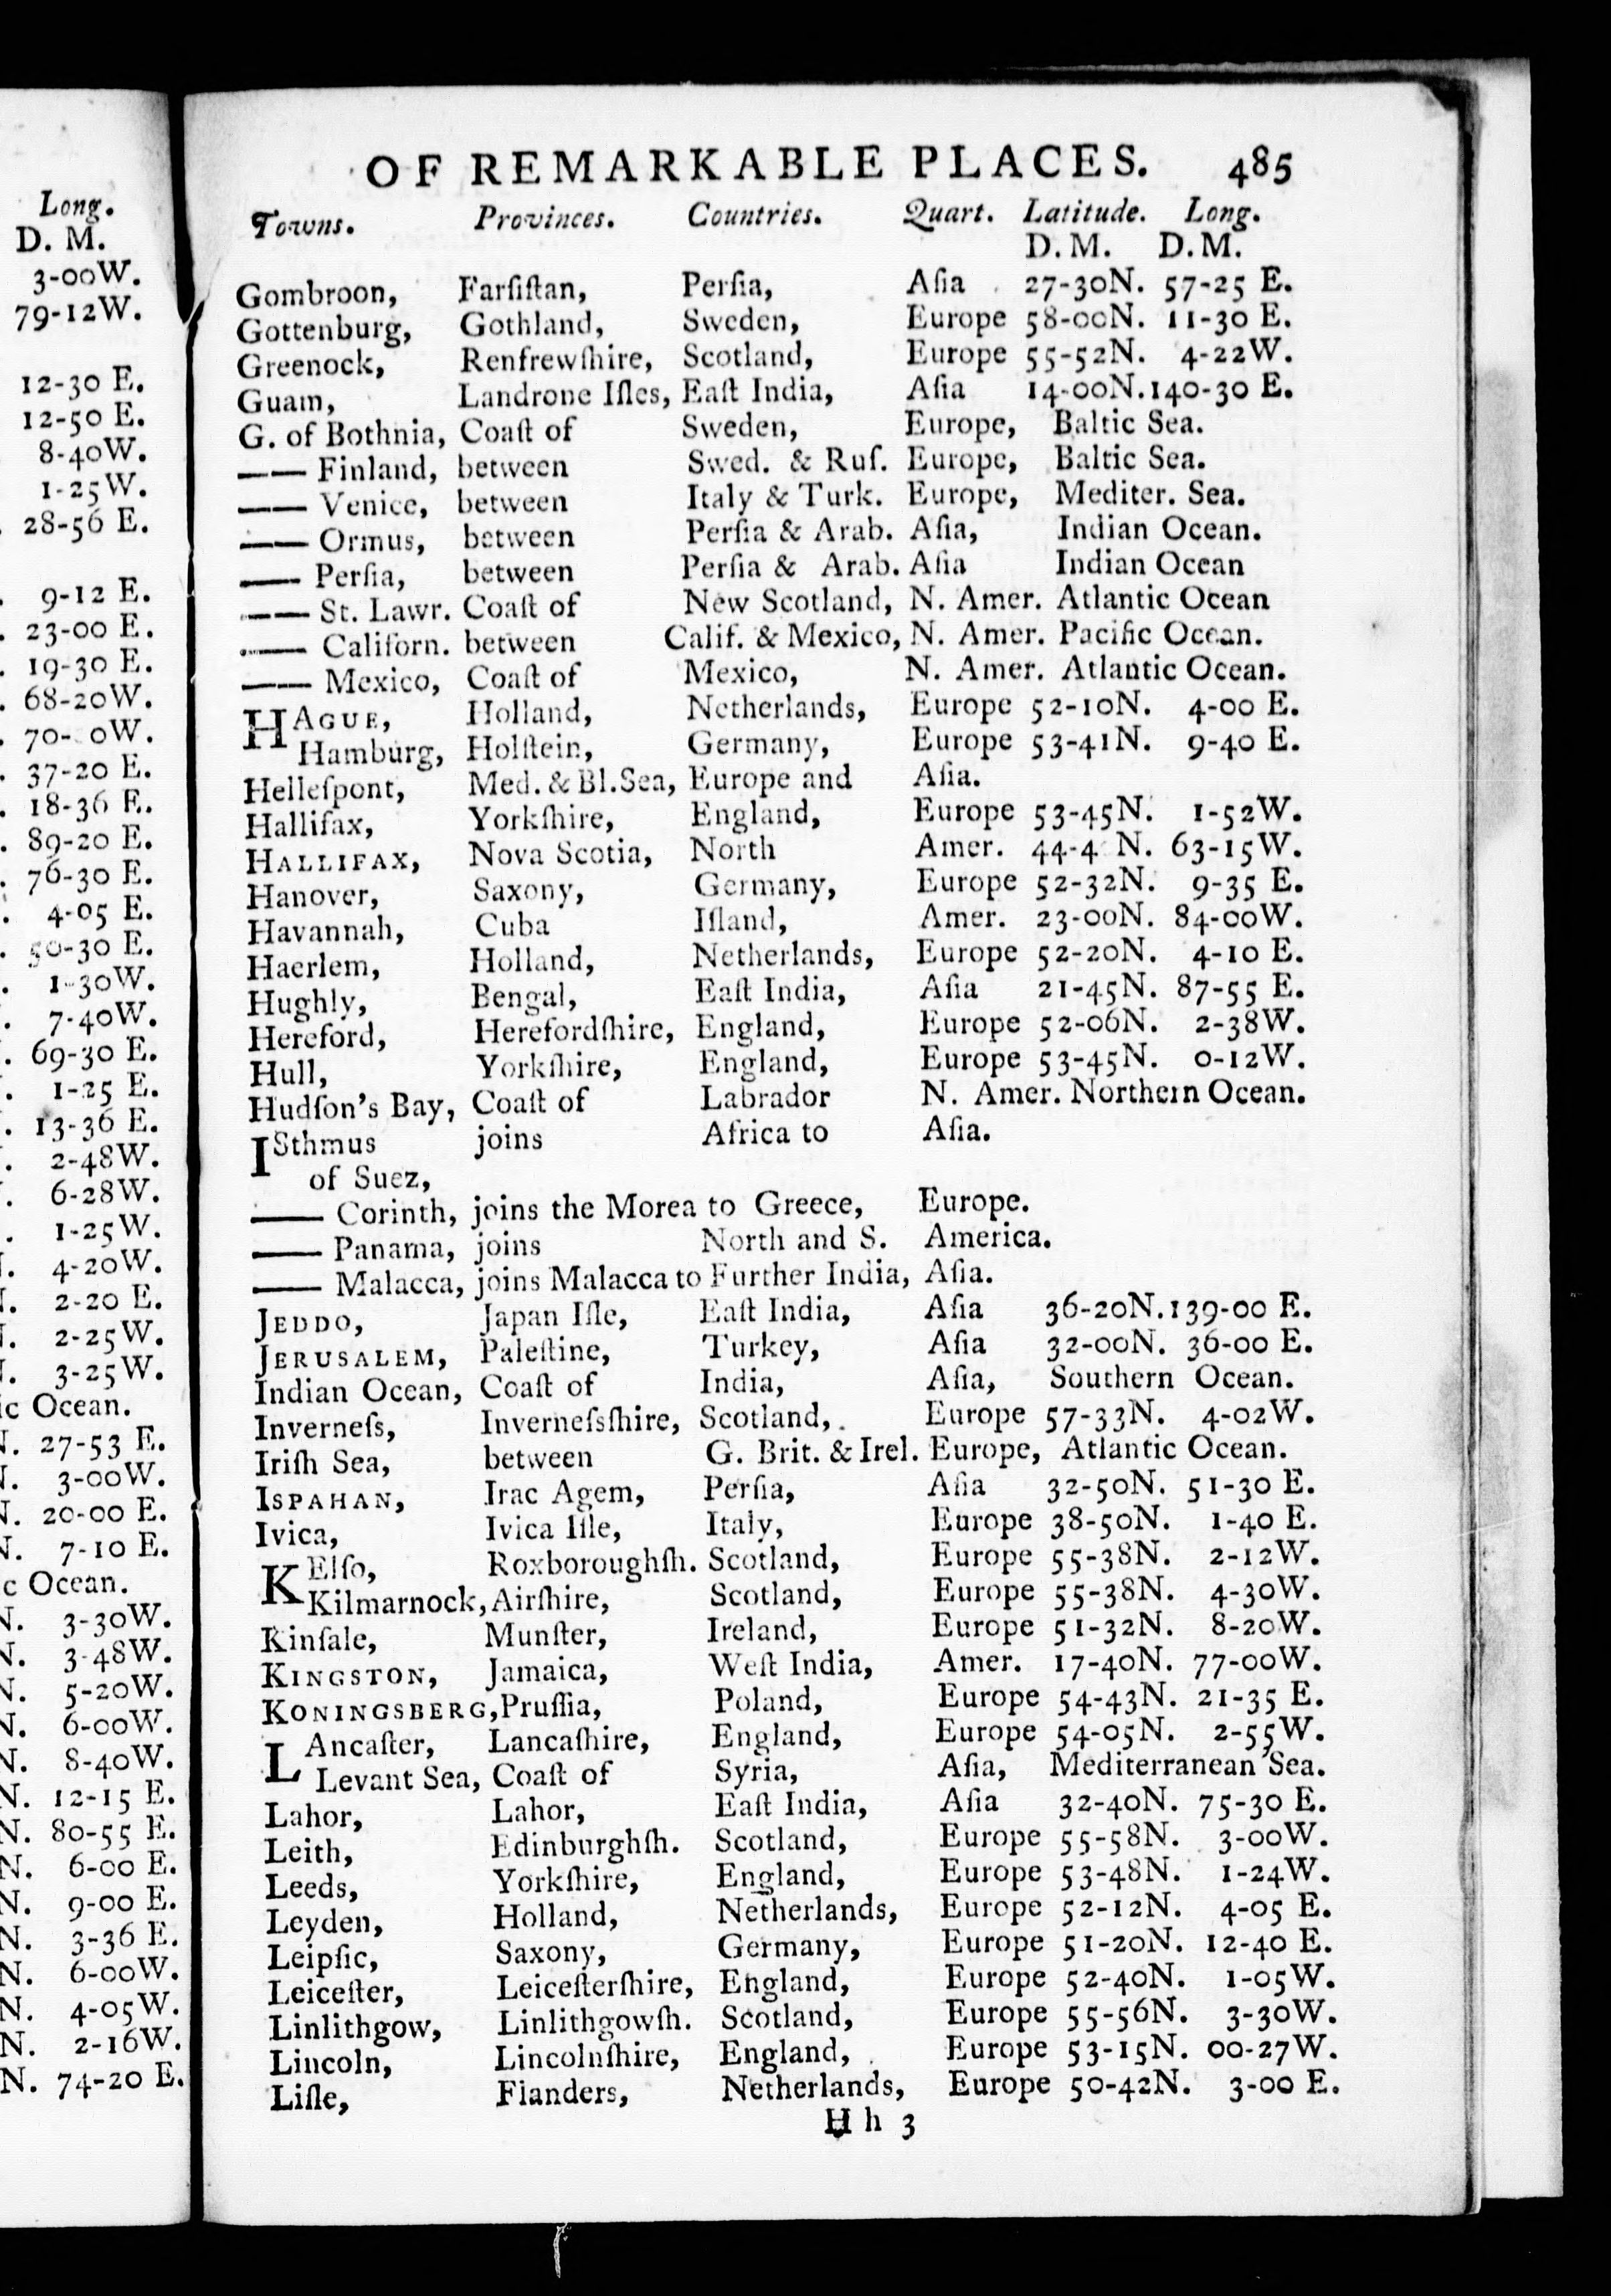 Long.
D. M.
3-00W.
79-12W.
12-30 E.
12-50 E.
8-40W.
1-25W.
28-56 E.
9-12 E.
23-00 E.
19-30 E.
68-20W.
70- 0W.
37-20 E.
18-36 E.
89-20 E.
76-30 E.
4-05 E.
50-30 E.
1-30W.
7-40W.
69-30 E.
1-25 E.
13-36 E.
2-48W.
6-28W.
1-25W.
4-20W.
2-20 E.
2-25W.
3-25W.
ic Ocean.
N. 27-53 E.
N. 3-00W.
N. 20-00 E.
N. 7-10 E.
c Ocean.
N. 3-30W.
N. 3-48W.
N. 5-20W.
N. 6-00W.
N. 8-40W.
N. 12-15 E.
N. 80-55 E.
N. 6-00 E.
N. 9-00 E.
N. 3-36 E.
N. 6-00W.
N. 4-05W.
N. 2-16W.
N. 74-20 E.
OF REMARKABLE PLACES. 485
Towns. Provinces. Countries. Quart. Latitude. Long.
D. M. D. M.
Gombroon, Farſiſtan, Perſia, Aſia 27-30N. 57-25 E.
Gottenburg, Gothland, Sweden, Europe 58-00N. 11-30 E.
Greenock, Renfrewſhire, Scotland, Europe 55-52N. 4-22W.
Guam, Landrone Iſles, Eaſt India, Aſia 14-00N. 140-30 E.
G. of Bothnia, Coaſt of Sweden, Europe, Baltic Sea.
—— Finland, between Swed. & Ruſ. Europe, Baltic Sea.
—— Venice, between Italy & Turk. Europe, Mediter. Sea.
—— Ormus, between Perſia & Arab. Aſia, Indian Ocean.
—— Perſia, between Perſia & Arab. Aſia Indian Ocean
—— St. Lawr. Coaſt of New Scotland, N. Amer. Atlantic Ocean
—— Californ. between Calif. & Mexico, N. Amer. Pacific Ocean.
—— Mexico, Coaſt of Mexico, N. Amer. Atlantic Ocean.
HAGUE, Holland, Netherlands, Europe 52-10N. 4-00 E.
Hamburg, Holſtein, Germany, Europe 53-41N. 9-40 E.
Helleſpont, Med. & Bl. Sea, Europe and Aſia.
Hallifax, Yorkſhire, England, Europe 53-45N. 1-52W.
HALLIFAX, Nova Scotia, North Amer. 44-4 N. 63-15W.
Hanover, Saxony, Germany, Europe 52-32N. 9-35 E.
Havannah, Cuba Iſland, Amer. 23-00N. 84-00W.
Haerlem, Holland, Netherlands, Europe 52-20N. 4-10 E.
Hughly, Bengal, Eaſt India, Aſia 21-45N. 87-55 E.
Hereford, Herefordſhire, England, Europe 52-06N. 2-38W.
Hull, Yorkſhire, England, Europe 53-45N. 0-12W.
Hudſon's Bay, Coaſt of Labrador N. Amer. Northern Ocean.
ISthmus joins Africa to Aſia.
of Suez,
—— Corinth, joins the Morea to Greece, Europe.
—— Panama, joins North and S. America.
—— Malacca, joins Malacca to Further India, Aſia.
JEDDO, Japan Iſle, Eaſt India, Aſia 36-20N. 139-00 E.
JERUSALEM, Paleſtine, Turkey, Aſia 32-00N. 36-00 E.
Indian Ocean, Coaſt of India, Aſia, Southern Ocean.
Inverneſs, Inverneſsſhire, Scotland, Europe 57-33N. 4-02W.
Iriſh Sea, between G. Brit. & Irel. Europe, Atlantic Ocean.
ISPAHAN, Irac Agem, Perſia, Aſia 32-50N. 51-30 E.
Ivica, Ivica Iſle, Italy, Europe 38-50N. 1-40 E.
KElſo, Roxboroughſh. Scotland, Europe 55-38N. 2-12W.
Kilmarnock, Airſhire, Scotland, Europe 55-38N. 4-30W.
Kinſale, Munſter, Ireland, Europe 51-32N. 8-20W.
KINGSTON, Jamaica, Weſt India, Amer. 17-40N. 77-00W.
KONINGSBERG, Pruſſia, Poland, Europe 54-43N. 21-35 E.
LAncaſter, Lancaſhire, England, Europe 54-05N. 2-55W.
Levant Sea, Coaſt of Syria, Aſia, Mediterranean Sea.
Lahor, Lahor, Eaſt India, Aſia 32-40N. 75-30 E.
Leith, Edinburghſh. Scotland, Europe 55-58N. 3-00W.
Leeds, Yorkſhire, England, Europe 53-48N. 1-24W.
Leyden, Holland, Netherlands, Europe 52-12N. 4-05 E.
Leipſic, Saxony, Germany, Europe 51-20N. 12-40 E.
Leiceſter, Leiceſterſhire, England, Europe 52-40N. 1-05W.
Linlithgow, Linlithgowſh. Scotland, Europe 55-56N. 3-30W.
Lincoln, Lincolnſhire, England, Europe 53-15N. 00-27W.
Liſle, Flanders, Netherlands, Europe 50-42N. 3-00 E.
H h 3